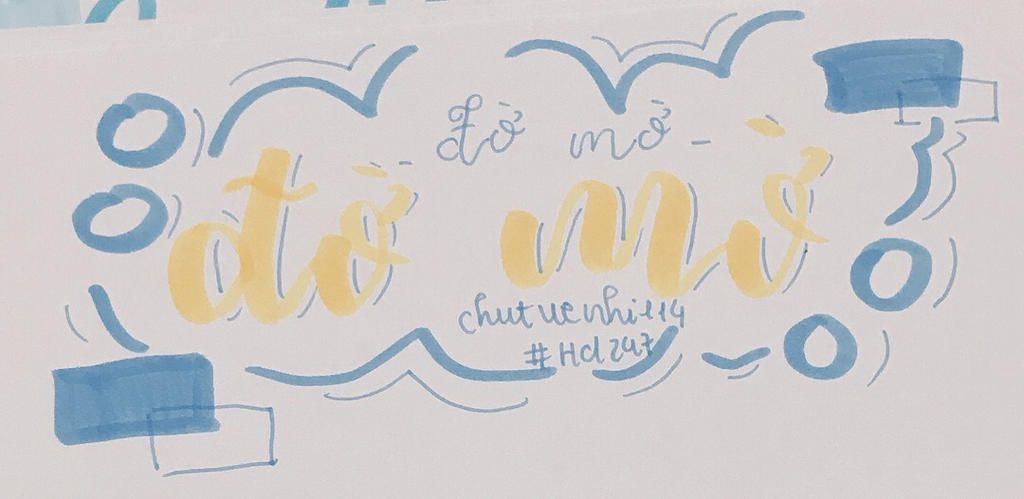 đờ mở
đờ mở
chutuenhi114
#Hd247